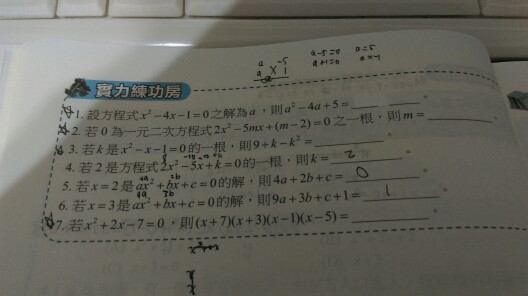 a -5 a-5=0 a=5
a 1 a+1=0 a=-1
實力練功房
☆1. 設方程式 x²-4x-1=0 之解為 a,則 a²-4a+5=________。
☆2. 若 0 為一元二次方程式 2x²-5mx+(m-2)=0 之一根,則 m=________。
☆3. 若 k 是 x²-x-1=0 的一根,則 9+k-k²=________。
4. 若 2 是方程式 2x²-5x+k=0 的一根,則 k=2。
4a 2b
5. 若 x=2 是 ax²+bx+c=0 的解,則 4a+2b+c=0。
9a 3b
6. 若 x=3 是 ax²+bx+c=0 的解,則 9a+3b+c+1=1。
☆7. 若 x²+2x-7=0,則 (x+7)(x+3)(x-1)(x-5)=________。